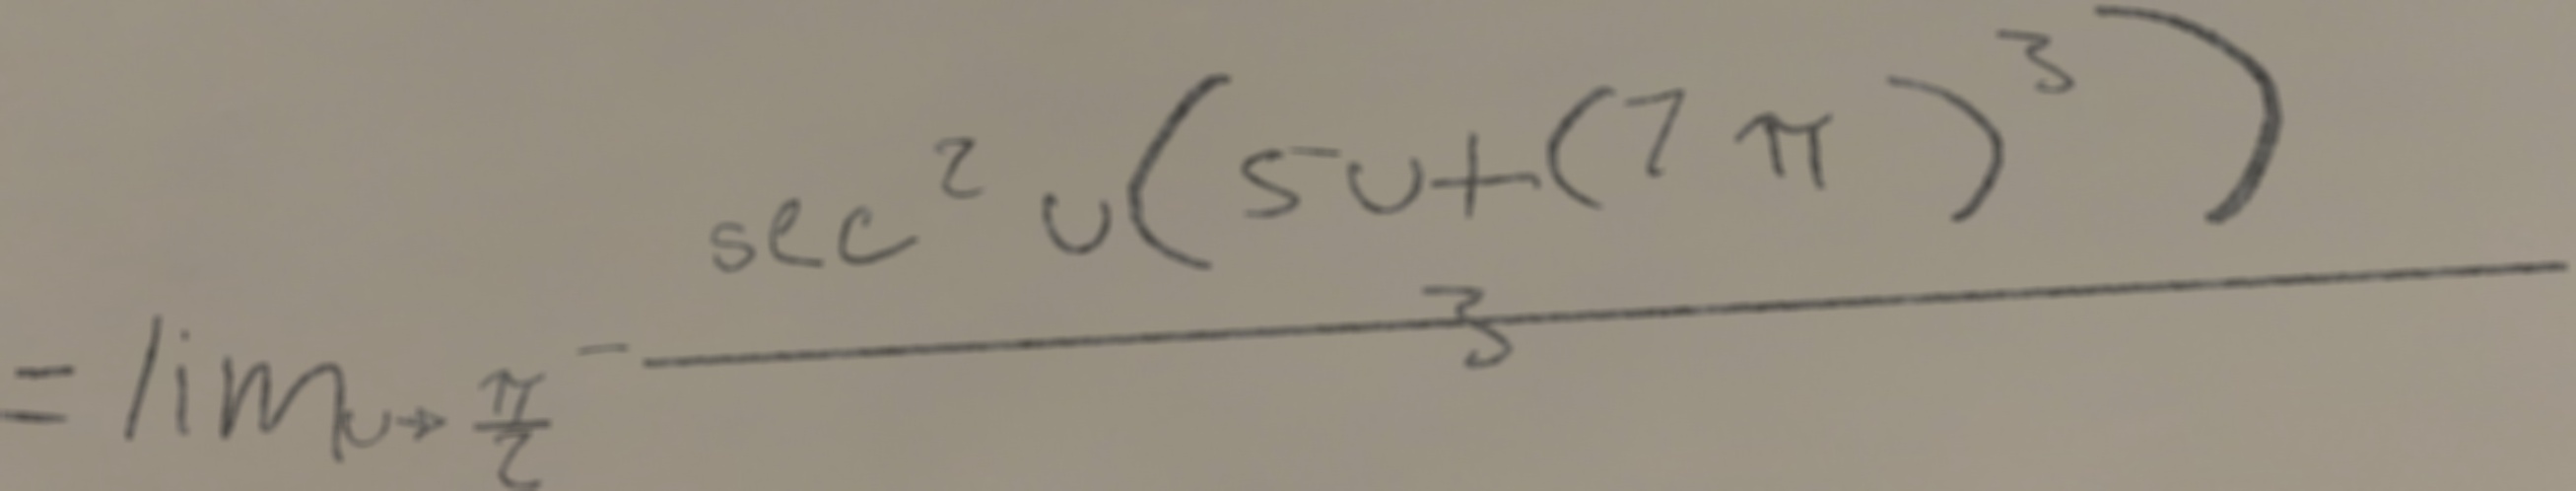 = lim_{u→\frac{π}{2}^-} \frac{sec^2 u(5u+(7π)^3)}{3}